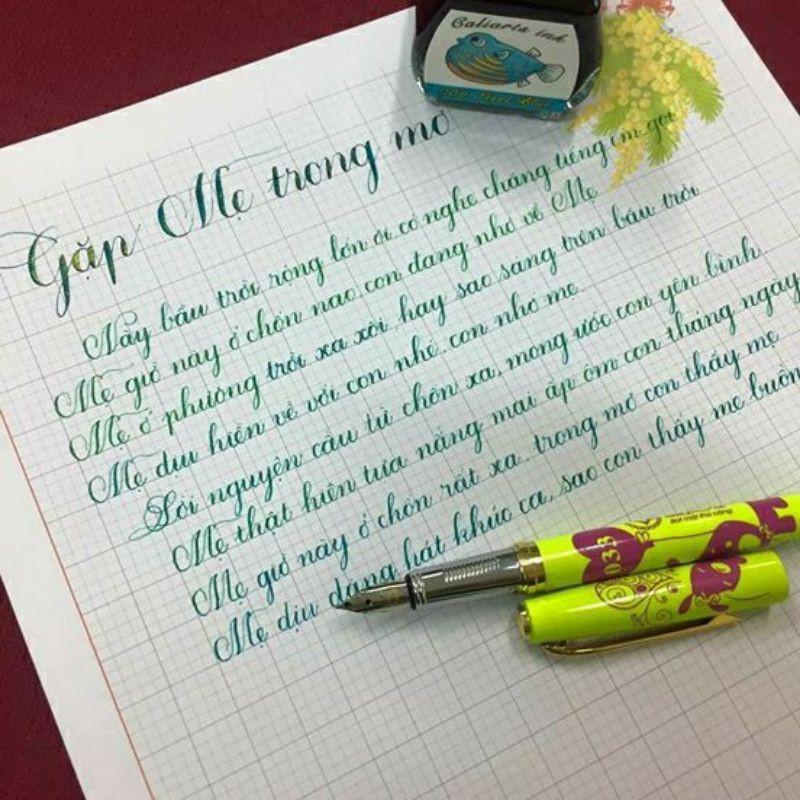 Caliarts ink
Gặp Mẹ trong mơ
Này bầu trời rộng lớn ơi, có nghe chăng tiếng em gọi
Mẹ giờ này ở chốn nao, con đang nhớ về Mẹ
Mẹ ở phương trời xa xôi, hay sao sáng trên bầu trời
Mẹ dịu hiền về với con nhé, con nhớ mẹ
Lời nguyện cầu từ chốn xa, mong ước con yên bình
Mẹ thật hiền tựa nắng mai ấp ôm con tháng ngày
Mẹ giờ này ở chốn rất xa, trong mơ con thấy mẹ
Mẹ dịu dàng hát khúc ca, sao con thấy mẹ buồn
033